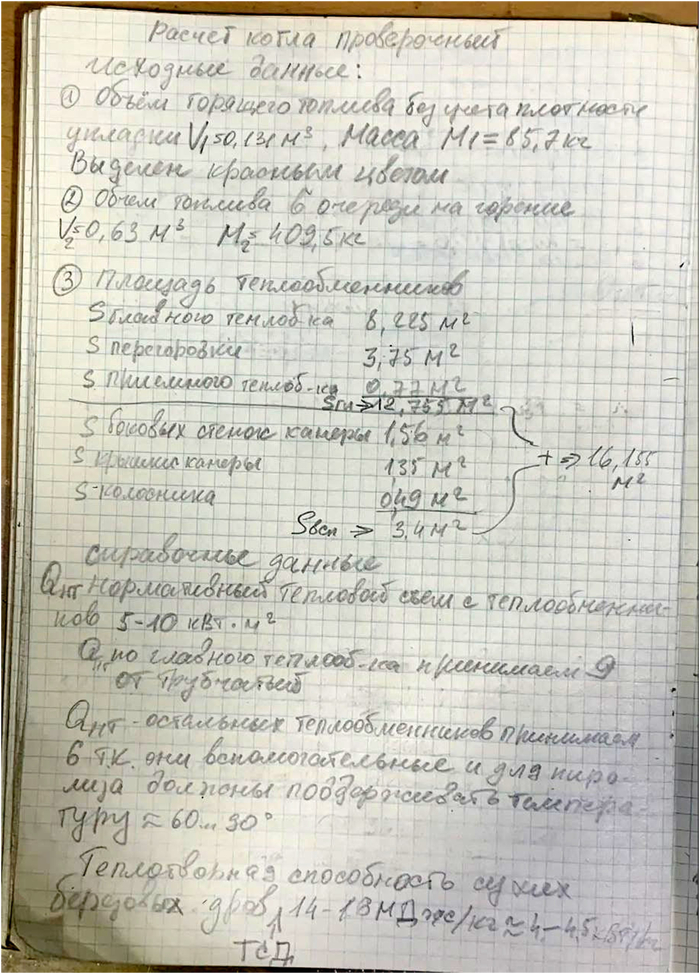 Расчет котла проверочный
Исходные данные:
① Объём горящего топлива без учета плотности
укладки V₁=0,131 м³, Масса М1=85,7кг
Выделен красным цветом
② Объем топлива в очереди на горение
V₂=0,63 м³ М₂=409,5кг
③ Площадь теплообменников
S главного теплоб-ка 8,225 м²
S перегоровки 3,75 м²
S приемного теплоб-ка 0,77 м²
Sгл⇒12,755 м²
S боковых стенок камеры 1,56 м²
S крышки камеры 1,35 м²
+ ⇒ 16,155
м²
S-колосника 0,49 м²
Sвсп ⇒ 3,4 м²
справочные данные
Qнт нормативный тепловой съем с теплообменни-
ков 5-10 кВт·м²
Q по главного теплооб-ка принимаем 9
от трубчатый
Qнт - остальных теплообменников принимаем
6 т.к. они вспомогательные и для пиро-
лиза должны поддерживать темпера-
туру ≈ 60...90°
Теплотворная способность сухих
березовых дров 14-18 МДж/кг ≈ 4-4,5кВт/кг
ТсД